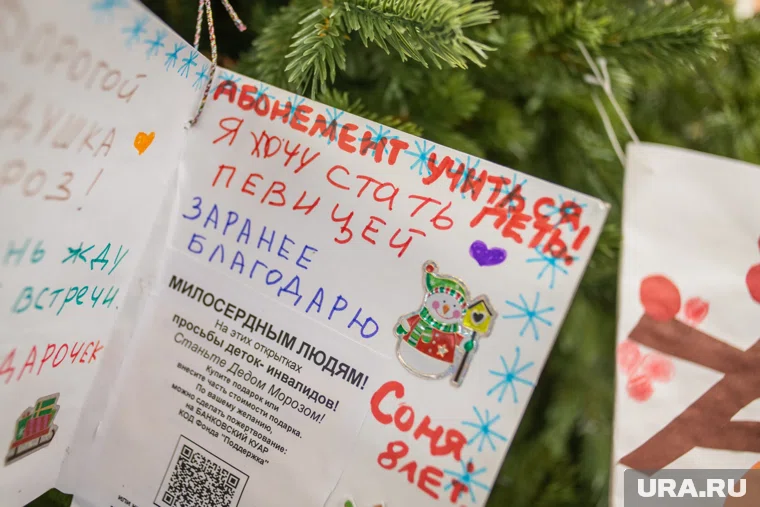 ДОРОГОЙ
ДУШКА
РОЗ!
нь жду
встречи.
ДАРОЧЕК
АБОНЕМЕНТ УЧИТЬСЯ
ПЕТЬ!
Я ХОЧУ СТАТЬ
ПЕВИЦЕЙ
ЗАРАНЕЕ
БЛАГОДАРЮ
МИЛОСЕРДНЫМ ЛЮДЯМ!
На этих открытках
просьбы деток- инвалидов!
Станьте Дедом Морозом!
Купите подарок или
внесите часть стоимости подарка.
По вашему желанию,
можно сделать пожертвование:
на БАНКОВСКИЙ КУАР
КОД Фонда "Поддержка"
Соня,
8 ЛЕТ
URA.RU